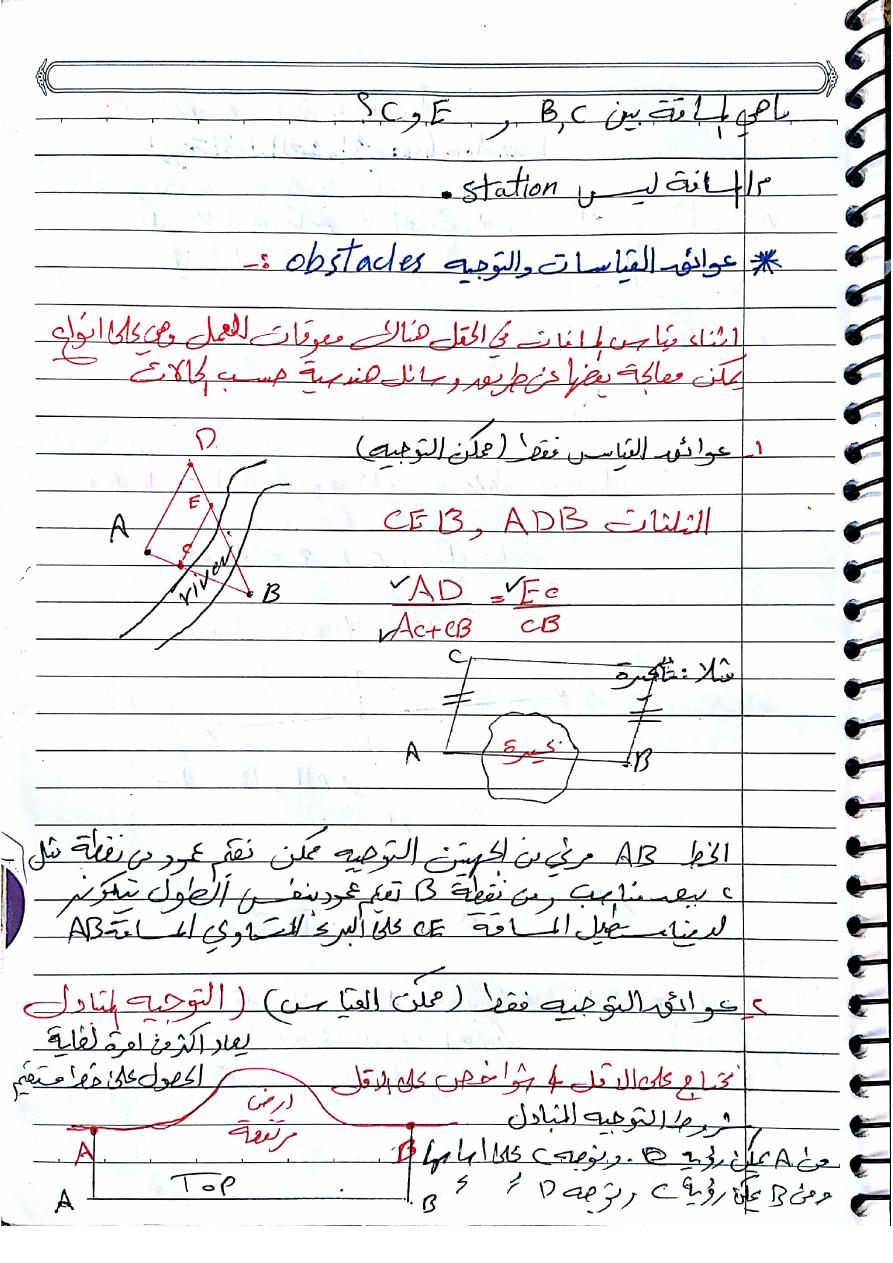 ماهي المسافة بين B,C و E و C ؟
المسافة ليس station .
* عوائق القياسات والتوجيه obstacles :-
اثناء قياس المسافات في الحقل هناك معوقات للعمل وهي على انواع
يمكن معالجة بعضها عن طريق وسائل هندسية حسب الحالات
1- عوائق القياس فقط (ممكن التوجيه)
D
E
A
C
river
B
المثلثات CEB , ADB
AD = Ec
Ac+CB CB
مثلا : بحيرة
C
A
بحيرة
B
الخط AB مرئي من الجهتين التوجيه ممكن نقيم عمود من نقطة مثل
c ببعد مناسب ومن نقطة B نقيم عمود بنفس الطول يتكون
لدينا مستطيل المسافة CE على البر تساوي المسافة AB
2- عوائق التوجيه فقط (ممكن القياس) (التوجيه المتبادل
يعاد اكثر من مرة لغاية
الحصول على خط مستقيم
نحتاج على الاقل 4 شواخص على الاقل
ارض
مرتفعة
شروط التوجيه المتبادل
A
B
من A يمكن رؤية D . ونوجه C على
ومن B يمكن رؤية C ونوجه D
Top
A
B